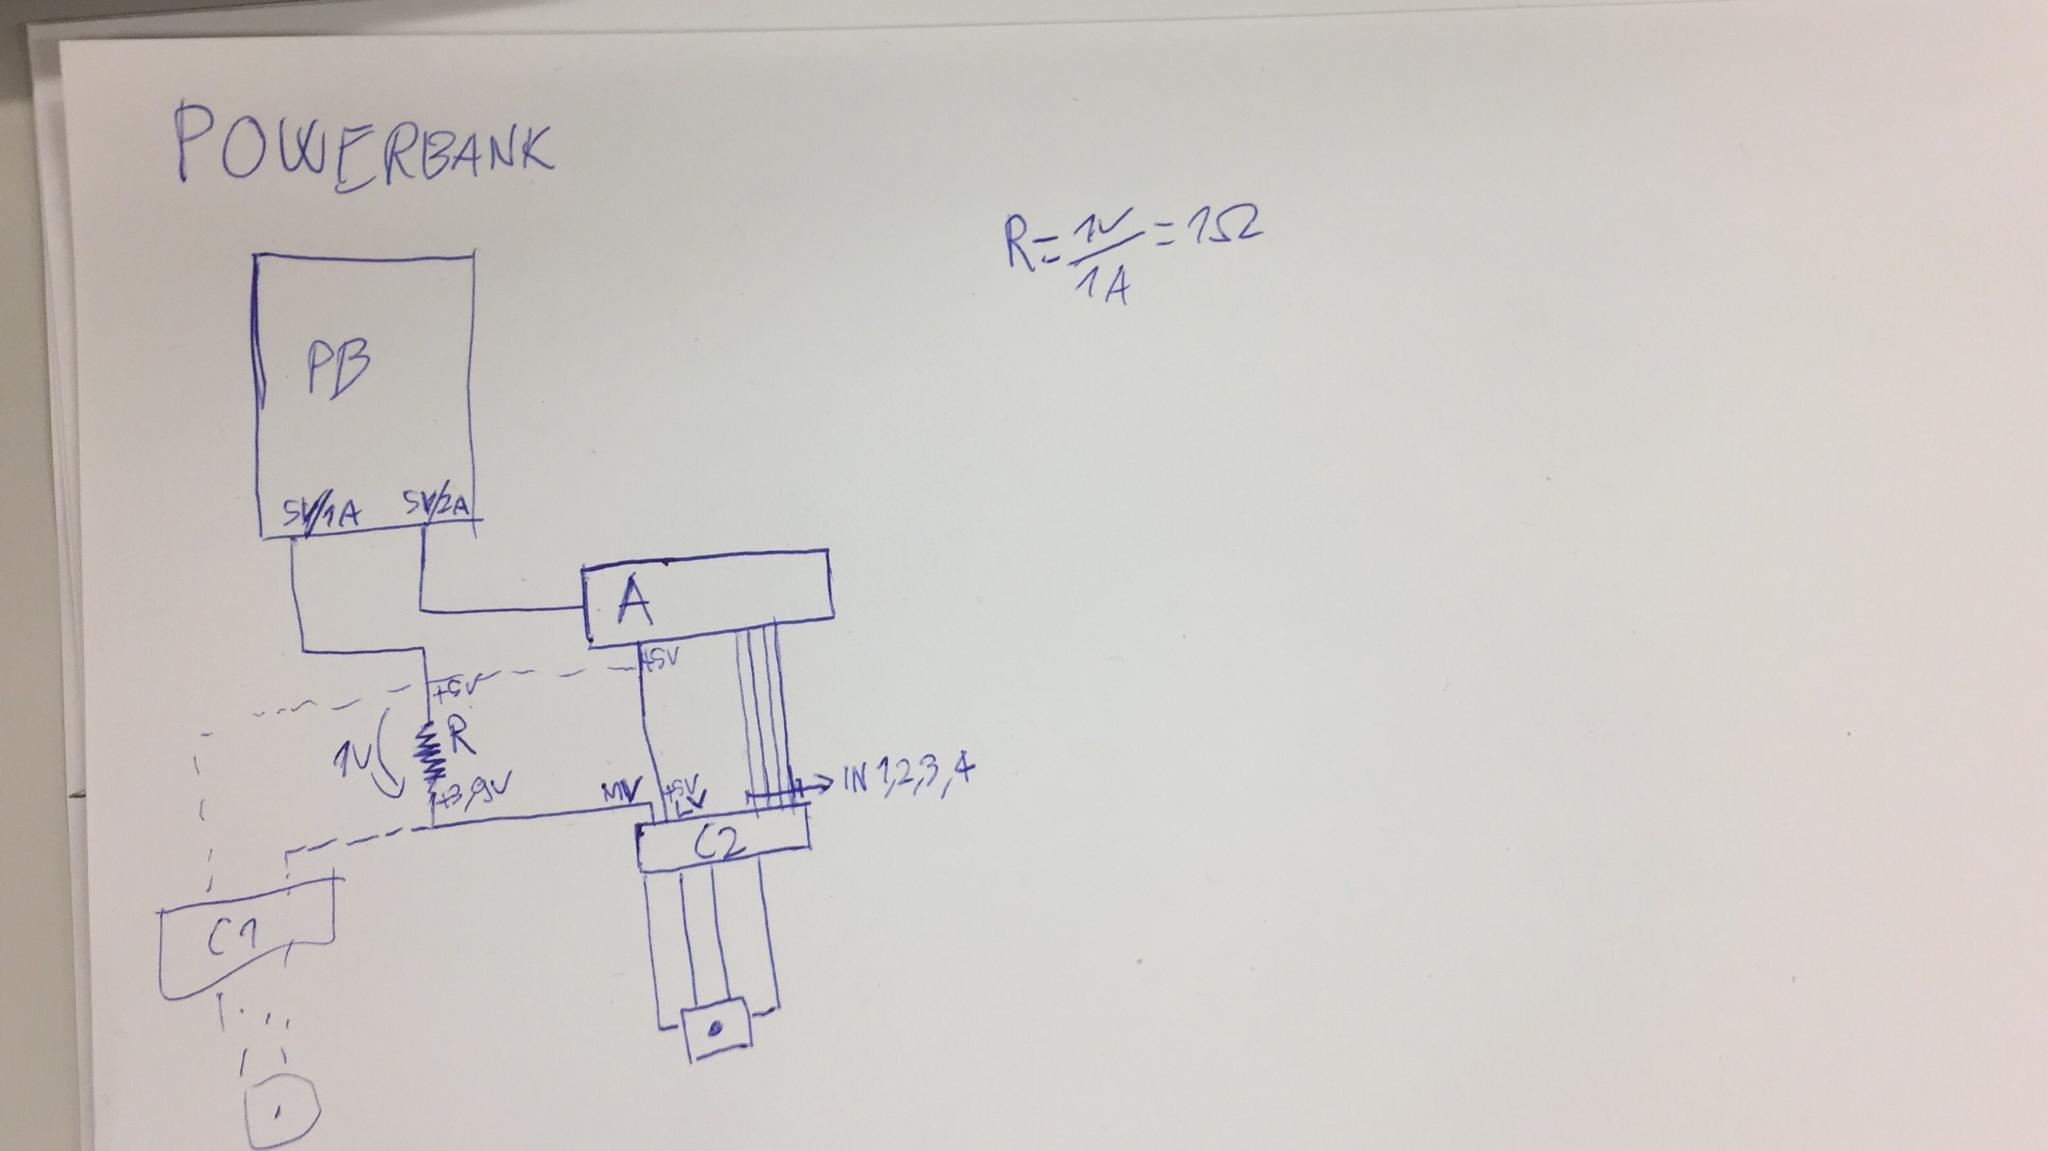 POWERBANK
R = 1V/1A = 1Ω
PB
5V/1A 5V/2A
A
+5V
+5V
R
1V
+3,9V
MV +5V
LV
IN 1,2,3,4
C2
C1